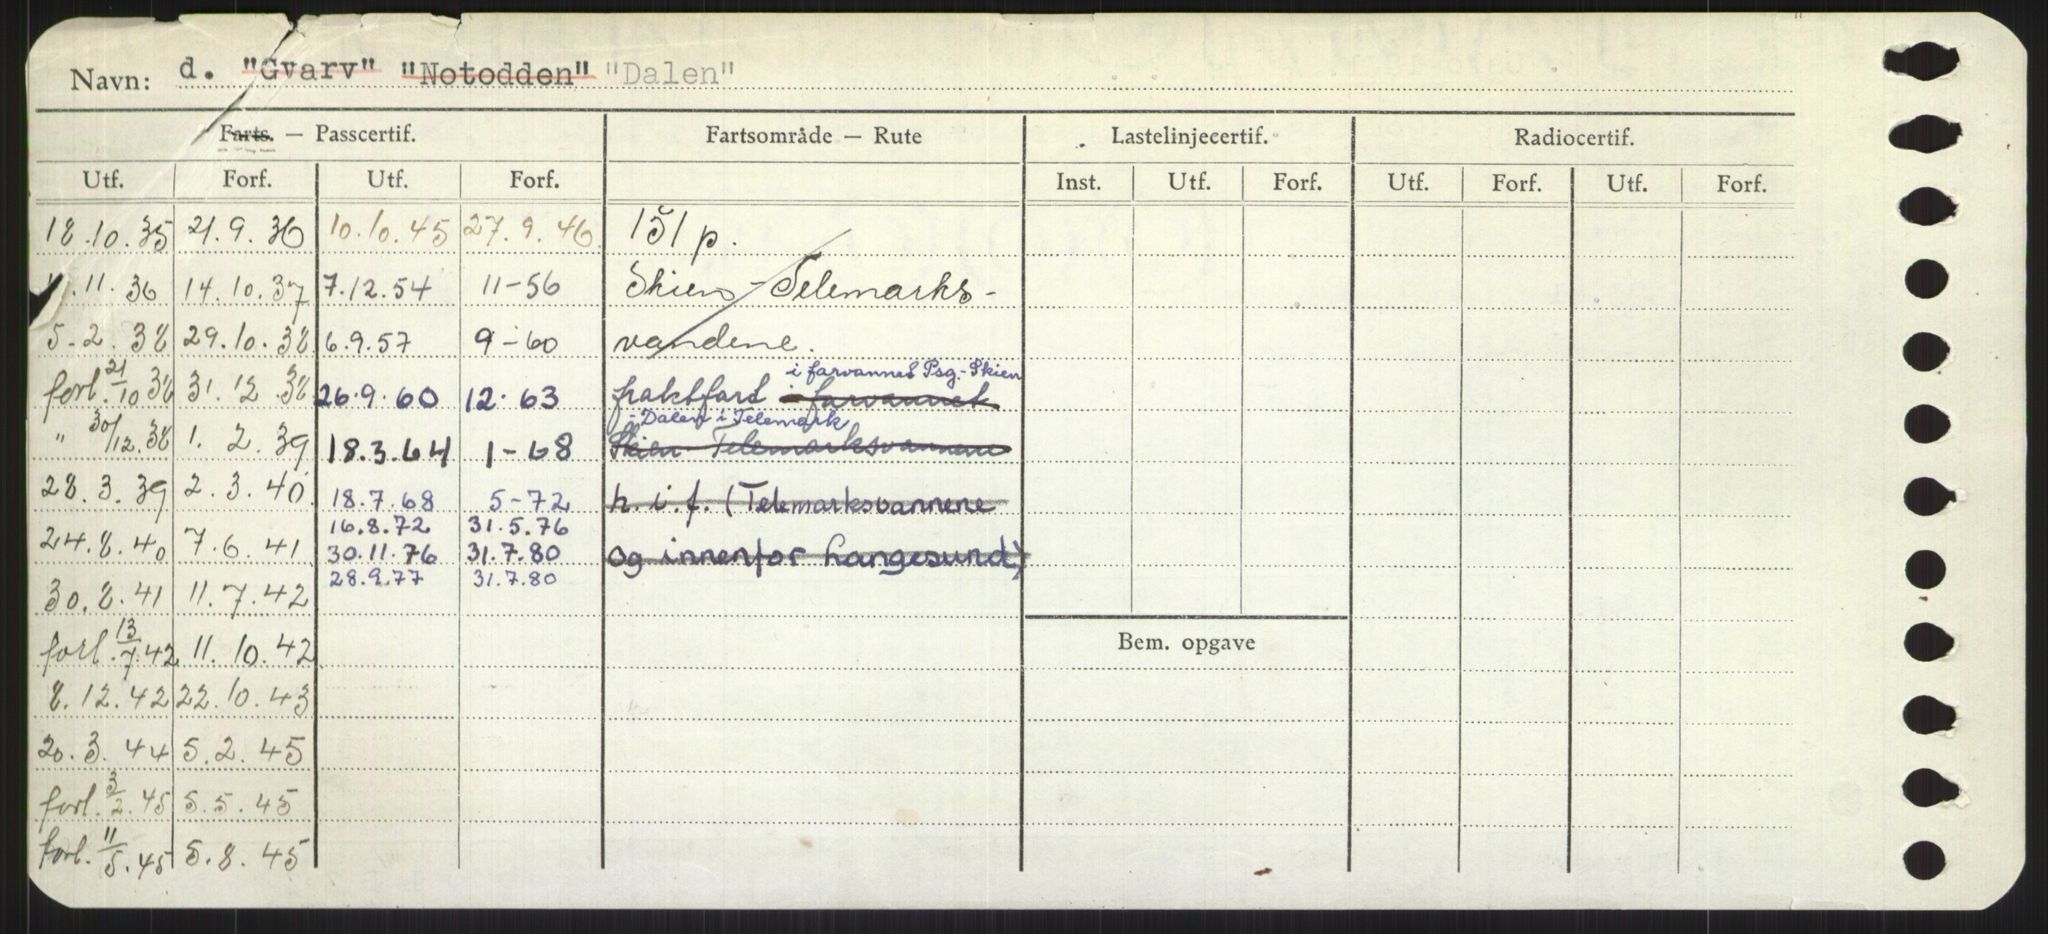 Navn: d. "Gvarv" "Notodden" "Dalen"
Farts. — Passcertif. Fartsområde — Rute Lastelinjecertif. Radiocertif.
Utf. Forf. Utf. Forf. Inst. Utf. Forf. Utf. Forf. Utf. Forf.
18.10.35 21.9.36 10.10.45 27.9.46 151 p.
.11.36 14.10.37 7.12.54 11-56 Skien - Telemarks-
5.2.38 29.10.38 6.9.57 9-60 vandene.
i farvannet Psg.-Skien
forl. 21/10 38 31.12.38 26.9.60 12.63 fraktfart i farvannet
- Dalen i Telemark
" 30/12.38 1.2.39 18.3.64 1-68 Skien - Telemarksvannene
28.3.39 2.3.40 18.7.68 5-72 h.i.f. (Telemarksvannene
16.8.72 31.5.76
24.8.40 7.6.41 30.11.76 31.7.80 og innenfor Langesund)
28.9.77 31.7.80
30.8.41 11.7.42
forl. 13/7.42 11.10.42 Bem. opgave
8.12.42 22.10.43
20.3.44 5.2.45
forl. 3/2.45 5.5.45
forl. 11/5.45 5.8.45